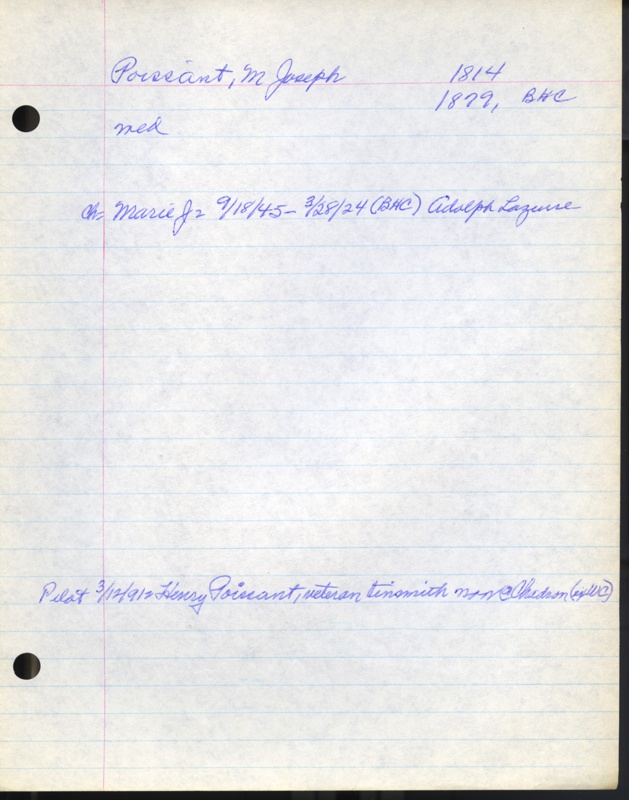 Poissant, M Joseph 1814
1879, BHC
med
ch= Marie J= 9/18/45 – 3/28/24 (BHC) Adolph Lazure
Pilot 3/12/91= Henry Poissant, veteran tinsmith now @ Chadron (ex WC)